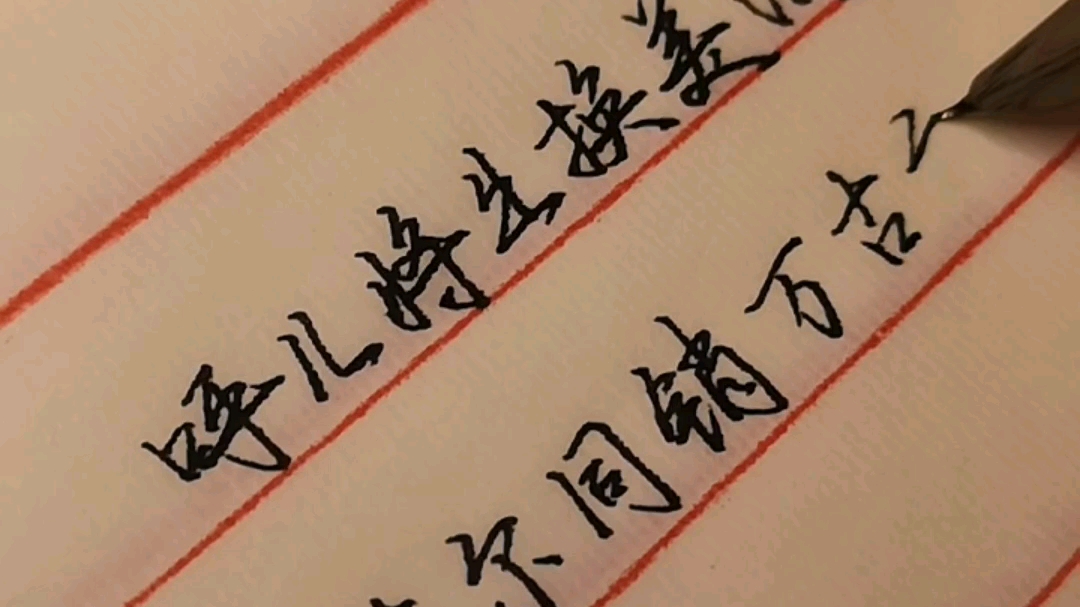 呼儿将出换美
尔同销万古